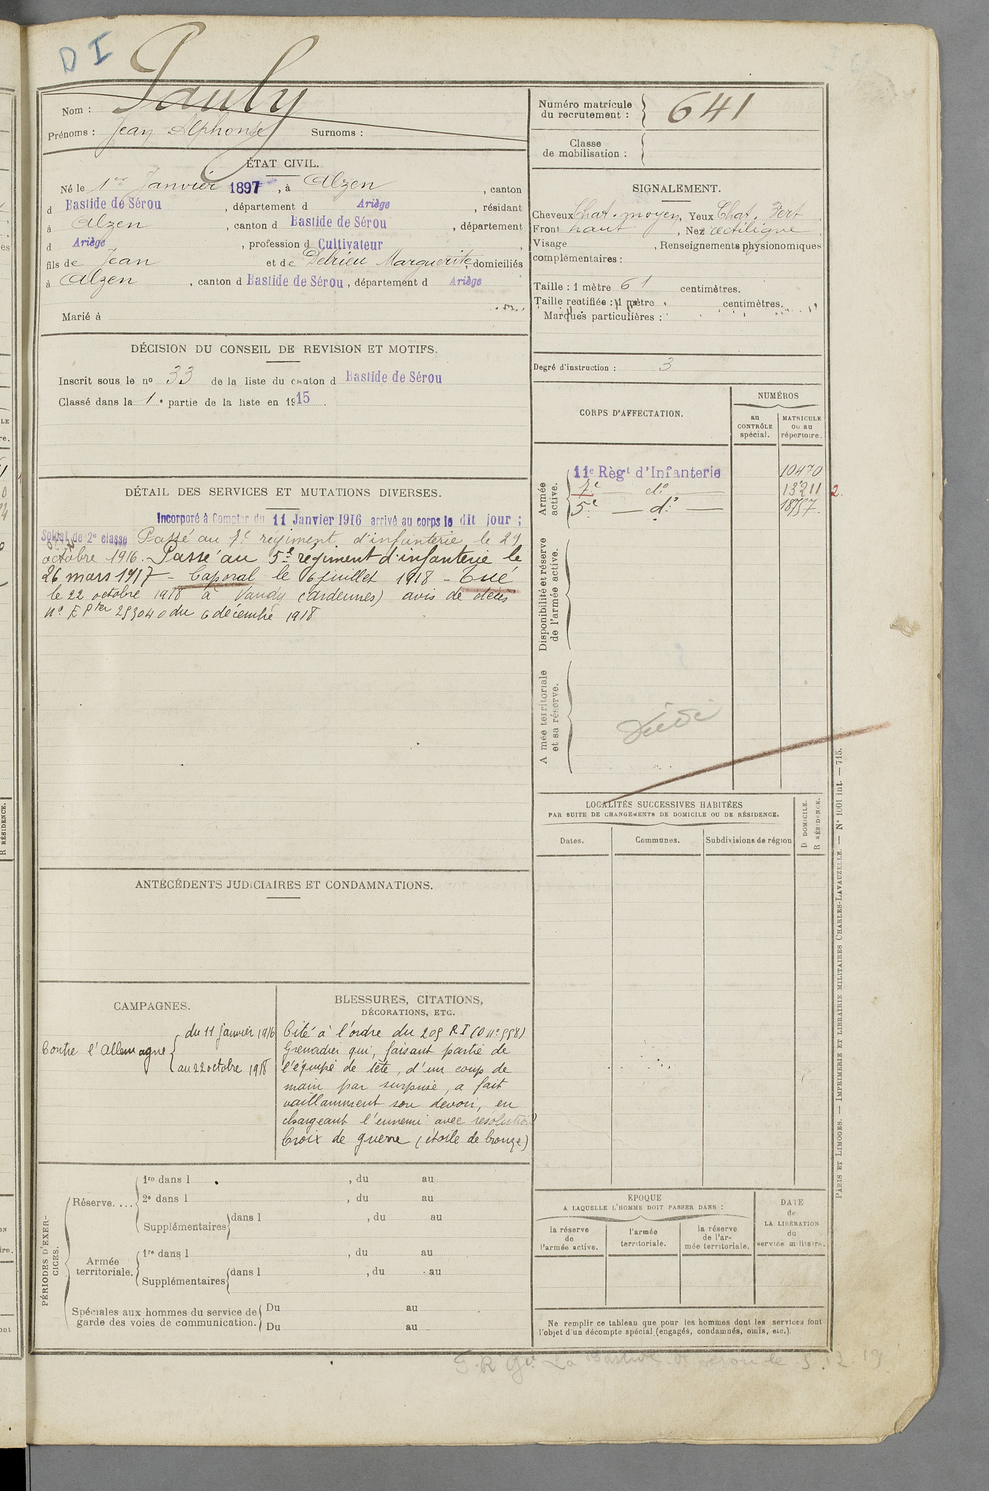 D I
Nom : Pauly
Prénoms : Jean Alphonse Surnoms :
ÉTAT CIVIL.
Né le 1er Janvier 1897, à Alzen, canton
d Bastide de Sérou, département d Ariège, résidant
à Alzen, canton d Bastide de Sérou, département
d Ariège, profession d Cultivateur,
fils de Jean et de Delrieu Marguerite, domiciliés
à Alzen, canton d Bastide de Sérou, département d Ariège
Marié à
DÉCISION DU CONSEIL DE REVISION ET MOTIFS.
Inscrit sous le no 33 de la liste du canton d Bastide de Sérou
Classé dans la 1e partie de la liste en 1915.
DÉTAIL DES SERVICES ET MUTATIONS DIVERSES.
Incorporé à Compter du 11 Janvier 1916 arrivé au corps le dit jour ;
Soldat de 2e classe Passé au 7e régiment d'infanterie le 29
octobre 1916. Passé au 5e régiment d'infanterie le
26 mars 1917 - Caporal le 16 juillet 1918 - Tué
le 22 octobre 1918 à Vandy (Ardennes) avis de décès
du 6 décembre 1918
ANTÉCÉDENTS JUDICIAIRES ET CONDAMNATIONS.
CAMPAGNES.
Contre l'Allemagne { du 11 janvier 1916
au 22 octobre 1918
BLESSURES, CITATIONS,
DÉCORATIONS, ETC.
Cité à l'ordre du 209 RI (O no 558)
Grenadier qui, faisant partie de
l'équipe de tête, d'un coup de
main par surprise, a fait
vaillamment son devoir, en
chargeant l'ennemi avec resolution
Croix de guerre (étoile de bronze)
PÉRIODES D'EXERCICES.
Réserve.... 1re dans l , du au
2e dans l , du au
Supplémentaires dans l , du au
Armée territoriale. 1re dans l , du au
Supplémentaires dans l , du au
Spéciales aux hommes du service de Du au
garde des voies de communication. Du au
Numéro matricule
du recrutement : 641
Classe
de mobilisation :
SIGNALEMENT.
Cheveux Chat. moyen, Yeux Chat. Vert
Front haut, Nez rectiligne
Visage , Renseignements physionomiques
complémentaires :
Taille : 1 mètre 61 centimètres.
Taille rectifiée : 1 mètre centimètres.
Marques particulières :
Degré d'instruction : 3
CORPS D'AFFECTATION.
NUMÉROS
au
CONTRÔLE
spécial.
MATRICULE
ou au
répertoire.
Armée
active.
11e Règt d'Infanterie 10470
7e — do — 13211 2.
5e — do — 18757.
Disponibilité et réserve
de l'armée active.
Armée territoriale
et sa réserve.
LOCALITÉS SUCCESSIVES HABITÉES
PAR SUITE DE CHANGEMENTS DE DOMICILE OU DE RÉSIDENCE.
Dates.
Communes.
Subdivisions de région
D DOMICILE.
R RÉSIDENCE.
ÉPOQUE
A LAQUELLE L'HOMME DOIT PASSER DANS :
la réserve
de
l'armée active.
l'armée
territoriale.
la réserve
de l'armée territoriale.
DATE
de
LA LIBÉRATION
du
service militaire.
Ne remplir ce tableau que pour les hommes dont les services font
l'objet d'un décompte spécial (engagés, condamnés, omis, etc.).
PARIS ET LIMOGES. — IMPRIMERIE ET LIBRAIRIE MILITAIRES CHARLES-LAVAUZELLE. — No 1001 int. — 715.